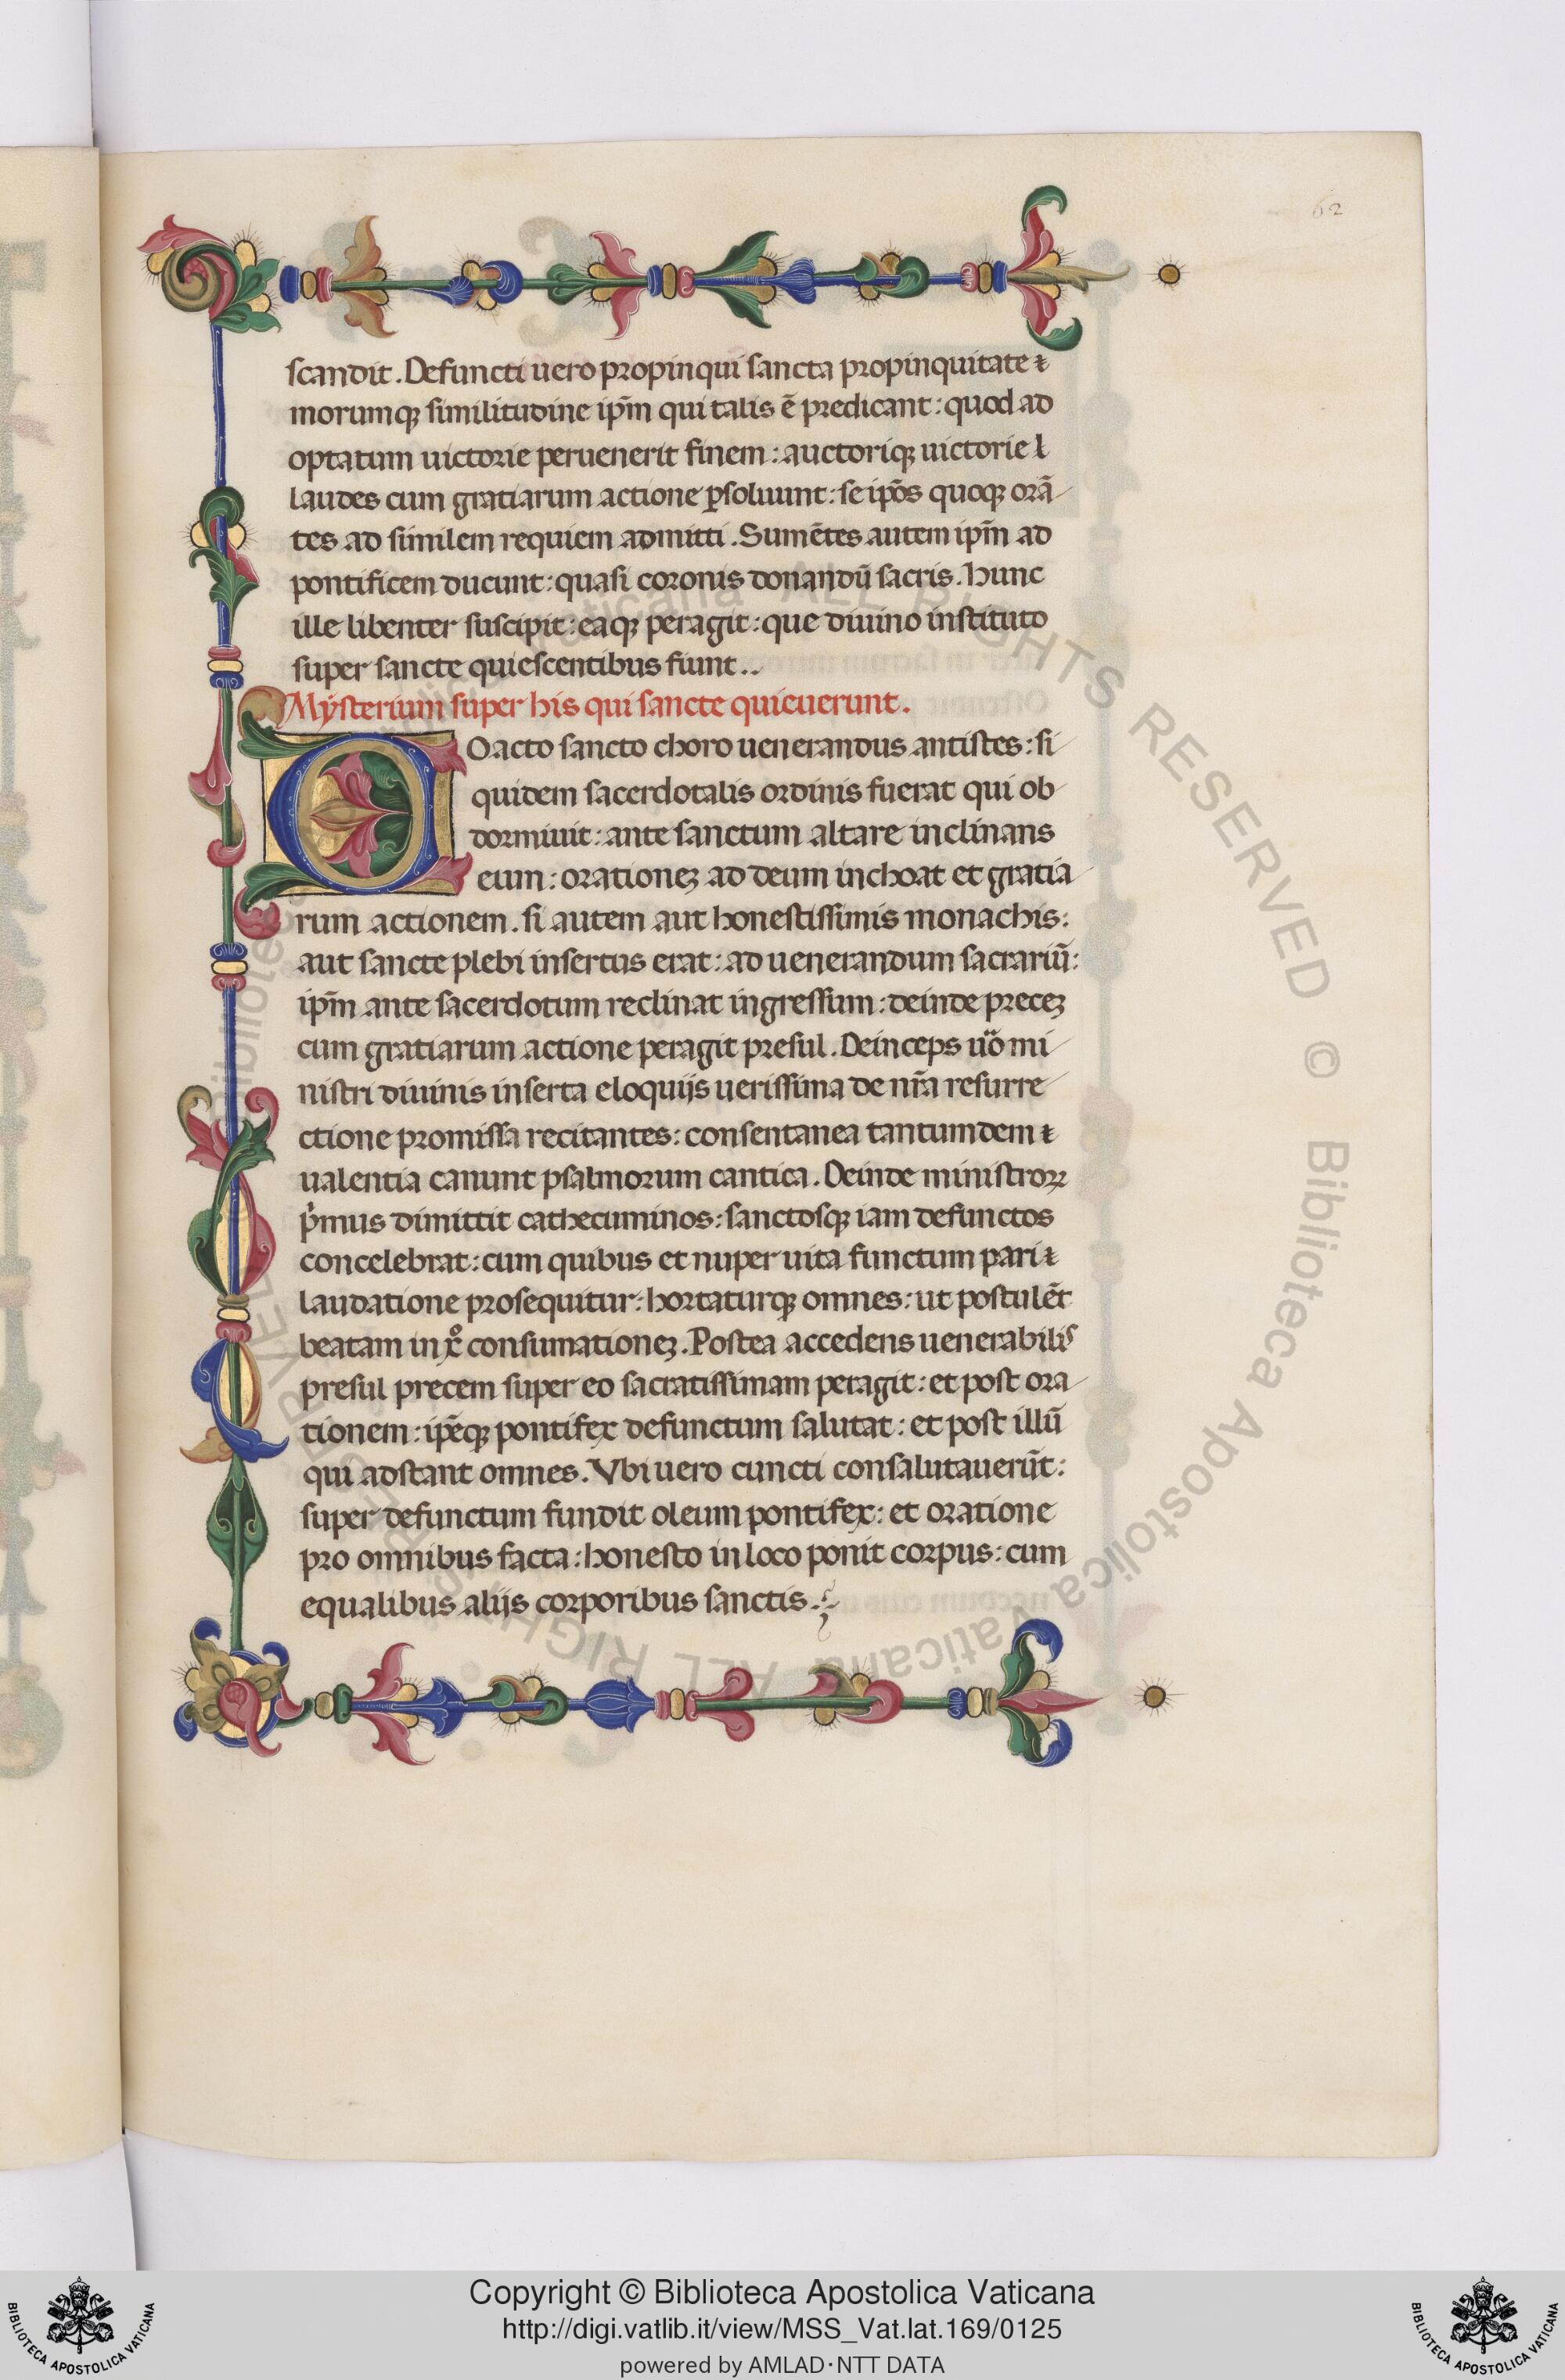 62
scandit. Defuncti uero propinqui sancta propinquitate ⁊
morumqꝫ similitudine ip̄m qui talis ē predicant: quod ad
optatum uictorie peruenerit finem: auctoriqꝫ uictorie l
laudes cum gratiarum actione ꝑsoluunt: se ip̄os quoqꝫ orā
tes ad similem requiem admitti. Sumētes autem ip̄m ad
pontificem ducunt: quasi coronis donandū sacris. Hunc
ille libenter suscipit: eaqꝫ peragit: que diuino instituto
super sancte quiescentibus fiunt..
Mÿsterium super his qui sancte quieuerunt.
COacto sancto choro uenerandus antistes: si
quidem sacerdotalis ordinis fuerat qui ob
dormiuit: ante sanctum altare inclinans
eum: orationeꝫ ad deum inchoat et gratia
rum actionem. si autem aut honestissimis monachis:
aut sancte plebi insertus erat: ad uenerandum sacrariū:
ip̄m ante sacerdotum reclinat ingressum: deinde preceꝫ
cum gratiarum actione peragit presul. Deinceps ūo mi
nistri diuinis inserta eloquijs uerissima de nr̄a resurre
ctione promissa recitantes: consentanea tantumdem ⁊
ualentia canunt psalmorum cantica. Deinde ministroꝝ
pⁱmus dimittit cathecuminos: sanctosqꝫ iam defunctos
concelebrat: cum quibus et nuper uita functum pari ⁊
laudatione prosequitur: hortaturqꝫ omnes: ut postulēt
beatam in xº consumationeꝫ. Postea accedens uenerabilis
presul precem super eo sacratissimam peragit: et post ora
tionem: ip̄eqꝫ pontifex defunctum salutat: et post illū
qui adstant omnes. Vbi uero cuncti consalutauerūt:
super defunctum fundit oleum pontifex: et oratione
pro omnibus facta: honesto in loco ponit corpus: cum
equalibus alijs corporibus sanctis.
Biblioteca Apostolica Vaticana ALL RIGHTS RESERVED ©
Copyright © Biblioteca Apostolica Vaticana
http://digi.vatlib.it/view/MSS_Vat.lat.169/0125
powered by AMLAD·NTT DATA
BIBLIOTECA APOSTOLICA VATICANA
BIBLIOTECA APOSTOLICA VATICANA